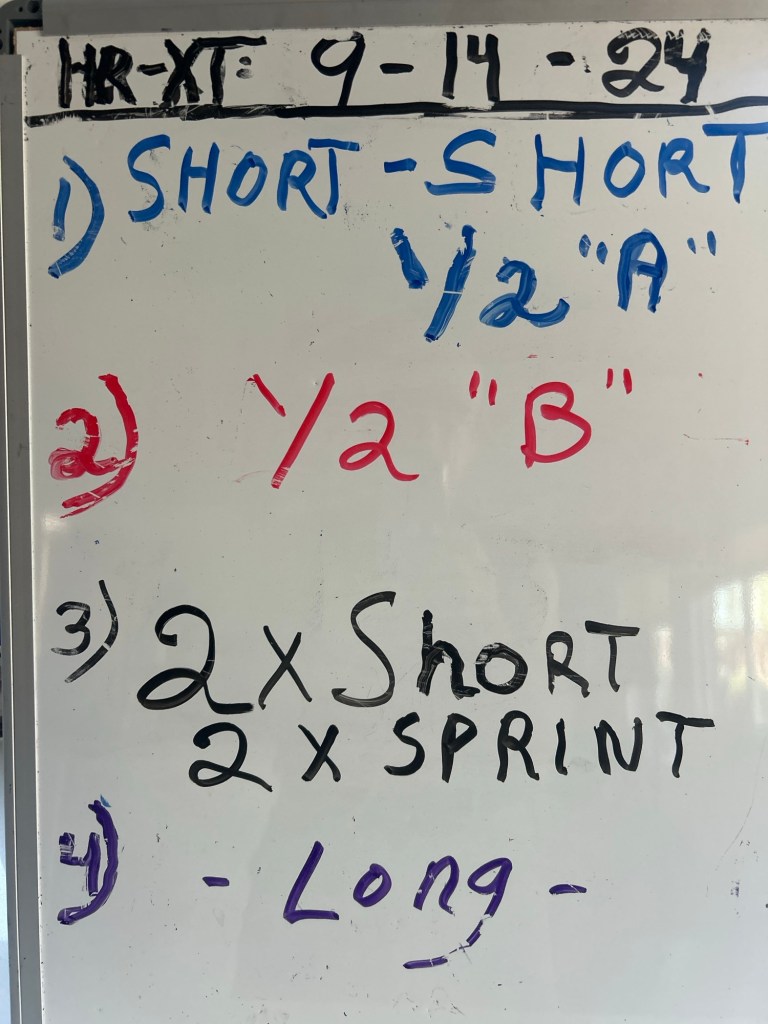 HR-XT: 9-14-24
1) SHORT-SHORT
1/2 "A"
2) 1/2 "B"
3) 2 x ShORT
2 x SPRINT
4) - Long -